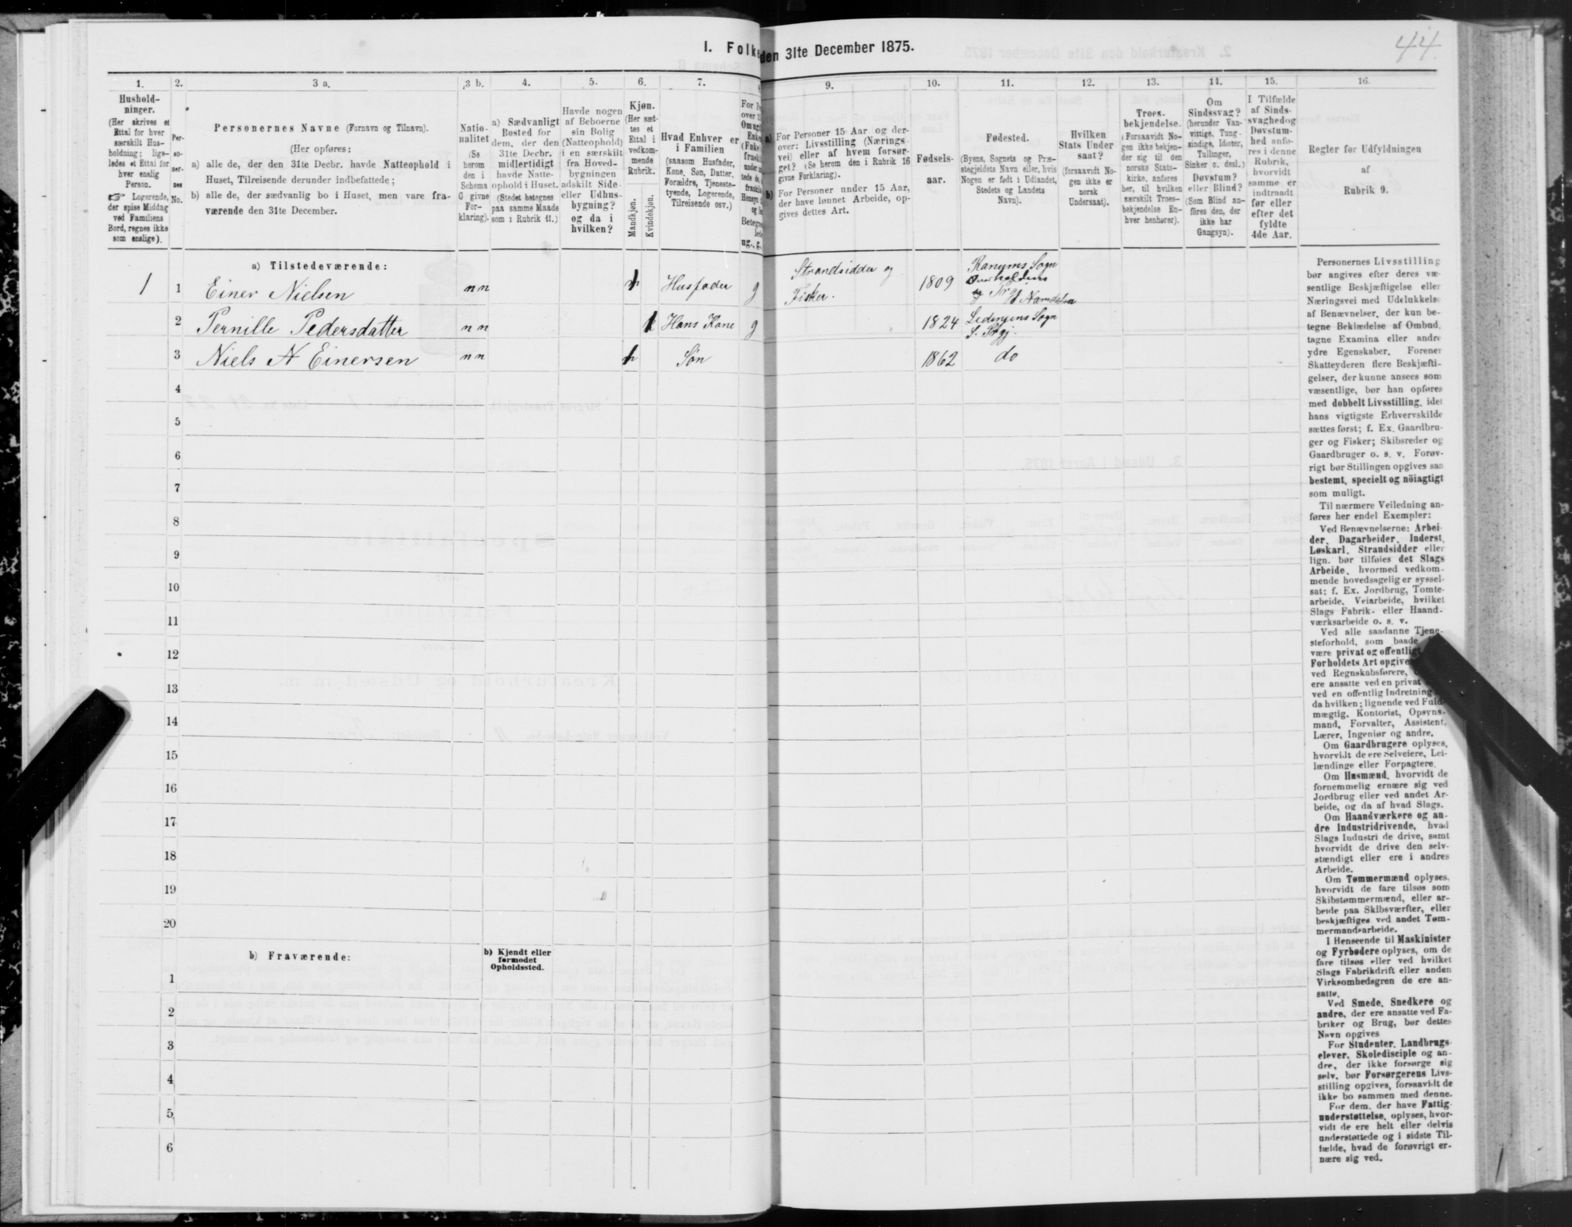 44
I. Folke
den 31te December 1875.
1. 2. 3 a. 3 b. 4. 5. 6. 7. 9. 10. 11. 12. 13. 14. 15. 16.
Hushold-
ninger.
(Her skrives et
Ettal for hver
særskilt Hus-
holdning; lige-
ledes et Ettal for
hver enslig
Person.
☞ Logerende,
der spise Middag
ved Familiens
Bord, regnes ikke
som enslige).
Per-
so-
ner-
nes
No.
Personernes Navne (Fornavn og Tilnavn).
(Her opføres:
a) alle de, der den 31te Decbr. havde Natteophold i
Huset, Tilreisende derunder indbefattede;
b) alle de, der sædvanlig bo i Huset, men vare fra-
værende den 31te December.
Natio-
nalitet
(Se
herom
den i
Schema
G givne
For-
klaring).
a) Sædvanligt
Bosted for
dem, der den
31te Decbr.
midlertidigt
havde Natte-
ophold i Huset.
(Stedet betegnes
paa samme Maade
som i Rubrik 11.)
Havde nogen
af Beboerne
sin Bolig
(Natteophold)
i en særskilt
fra Hoved-
bygningen
adskilt Side-
eller Udhus-
bygning?
og da i
hvilken?
Kjøn.
(Her sæt-
tes et
Ettal i
vedkom-
mende
Rubrik.
Mandkjøn.
Kvindekjøn.
Hvad Enhver er
i Familien
(saasom Husfader,
Kone, Søn, Datter,
Forældre, Tjeneste-
tyende, Logerende,
Tilreisende osv.)
a) For Personer 15 Aar og der-
over: Livsstilling (Nærings
vei) eller af hvem forsør-
get? (Se herom den i Rubrik 16
givne Forklaring).
b) For Personer under 15 Aar,
der have lønnet Arbeide, op-
gives dettes Art.
Fødsels-
aar.
Fødested.
(Byens, Sognets og Præ-
stegjeldets Navn eller, hvis
Nogen er født i Udlandet,
Stedets og Landets
Navn).
Hvilken
Stats Under
saat?
(forsaavidt No-
gen ikke er
norsk
Undersaat).
Troes-
bekjendelse.
(Forsaavidt No-
gen ikke bekjen-
der sig til den
norske Stats-
kirke, anføres
her, til hvilken
særskilt Troes-
bekjendelse En-
hver henhører).
Om
Sindssvag?
(herunder Van-
vittige, Tung-
sindige, Idioter,
Tullinger,
Sinker o. desl.)
Døvstum?
eller Blind?
(Som Blind an-
føres den, der
ikke har
Gangsyn).
I Tilfælde
af Sinds-
svaghedog
Døvstum-
hed anfø-
res i denne
Rubrik,
hvorvidt
samme er
indtraadt
før eller
efter det
fyldte
4de Aar.
Regler for Udfyldningen
af
Rubrik 9.
a) Tilstedeværende:
1 1 Einer Nielsen n n 1 Husfader g Strandsidder og Fisker. 1809 Ranems Sogn
2 Pernille Pedersdatter n n 1 Hans Kone g 1824
3 Niels A Einersen n n 1 Søn 1862 do
4
5
6
7
8
9
10
11
12
13
14
15
16
17
18
19
20
b) Fraværende:
b) Kjendt eller
formodet
Opholdssted.
1
2
3
4
5
6
Personernes Livsstilling
bør angives efter deres væ-
sentlige Beskjæftigelse eller
Næringsvei med Udelukkelse
af Benævnelser, der kun be-
tegne Beklædelse af Ombud,
tagne Examina eller andre
ydre Egenskaber. Forener
Skatteyderen flere Beskjæfti-
gelser, der kunne ansees som
væsentlige, bør han opføres
med dobbelt Livsstilling, idet
hans vigtigste Erhvervskilde
sættes først; f. Ex. Gaardbru-
ger og Fisker; Skibsreder og
Gaardbruger o. s. v. Forøv-
rigt bør Stillingen opgives saa
bestemt, specielt og nöiagtigt
som muligt.
Til nærmere Veiledning an-
føres her endel Exempler:
Ved Benævnelserne: Arbei-
der, Dagarbeider, Inderst,
Løskarl, Strandsidder eller
lign. bør tilføies det Slags
Arbeide, hvormed vedkom-
mende hovedsagelig er syssel-
sat; f. Ex. Jordbrug, Tomte-
arbeide, Veiarbeide, hvilket
Slags Fabrik- eller Haand-
værksarbeide o. s. v.
Ved alle saadanne Tjene-
steforhold, som baade
være privat og offentligt
Forholdets Art opgives
ved Regnskabsførere,
ere ansatte ved en privat
ved en offentlig Indretning
da hvilken; lignende ved Fuld-
mægtig, Kontorist, Opsyns-
mand, Forvalter, Assistent,
Lærer, Ingeniør og andre.
Om Gaardbrugere oplyses,
hvorvidt de ere Selveiere, Lei-
lændinge eller Forpagtere.
Om Husmænd, hvorvidt de
fornemmelig ernære sig ved
Jordbrug eller ved andet Ar-
beide, og da af hvad Slags.
Om Haandværkere og an-
dre Industridrivende, hvad
Slags Industri de drive, samt
hvorvidt de drive den selv-
stændigt eller ere i andres
Arbeide.
Om Tømmermænd oplyses,
hvorvidt de fare tilsøs som
Skibstømmermænd, eller ar-
beide paa Skibsværfter, eller
beskjæftiges ved andet Tøm-
mermandsarbeide.
I Henseende til Maskinister
og Fyrbødere oplyses, om de
fare tilsøs eller ved hvilket
Slags Fabrikdrift eller anden
Virksomhedsgren de ere an-
satte.
Ved Smede, Snedkere og
andre, der ere ansatte ved Fa-
briker og Brug, bør dettes
Navn opgives
For Studenter, Landbrugs-
elever, Skoledisciple og an-
dre, der ikke forsørge sig
selv, bør Forsørgerens Livs-
stilling opgives, forsaavidt de
ikke bo sammen med denne.
For dem, der have Fattig-
understøttelse, oplyses, hvor-
vidt de ere helt eller delvis
understøttede og i sidste Til-
fælde, hvad de forøvrigt er-
nære sig ved.